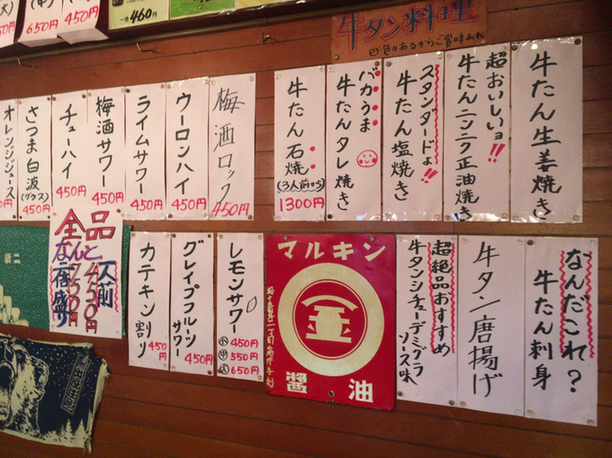 牛タン料理
色々あるからご賞味あれ
牛たん生姜焼き
超おいしいョ!!
牛たんニンニク正油焼き
スタンダードょ!!
牛たん塩焼き
バカうま
牛たんタレ焼き
牛たん石焼き
(3人前から)
1300円
梅酒ロック
450円
ウーロンハイ
450円
ライムサワー
450円
梅酒サワー
450円
チューハイ
450円
さつま白波(グラス)
450円
オレンジジュース
なんだこれ?
牛たん刺身
牛タン唐揚げ
超絶品おすすめ
牛タンシチューデミグラソース味
マルキン
金
醬油
レモンサワー
小 450円
中 550円
大 650円
グレイプフルーツサワー
450円
カテキン割り
450円
全品
なんと
1人前
450円
750円
倍盛り
460
650円
450円